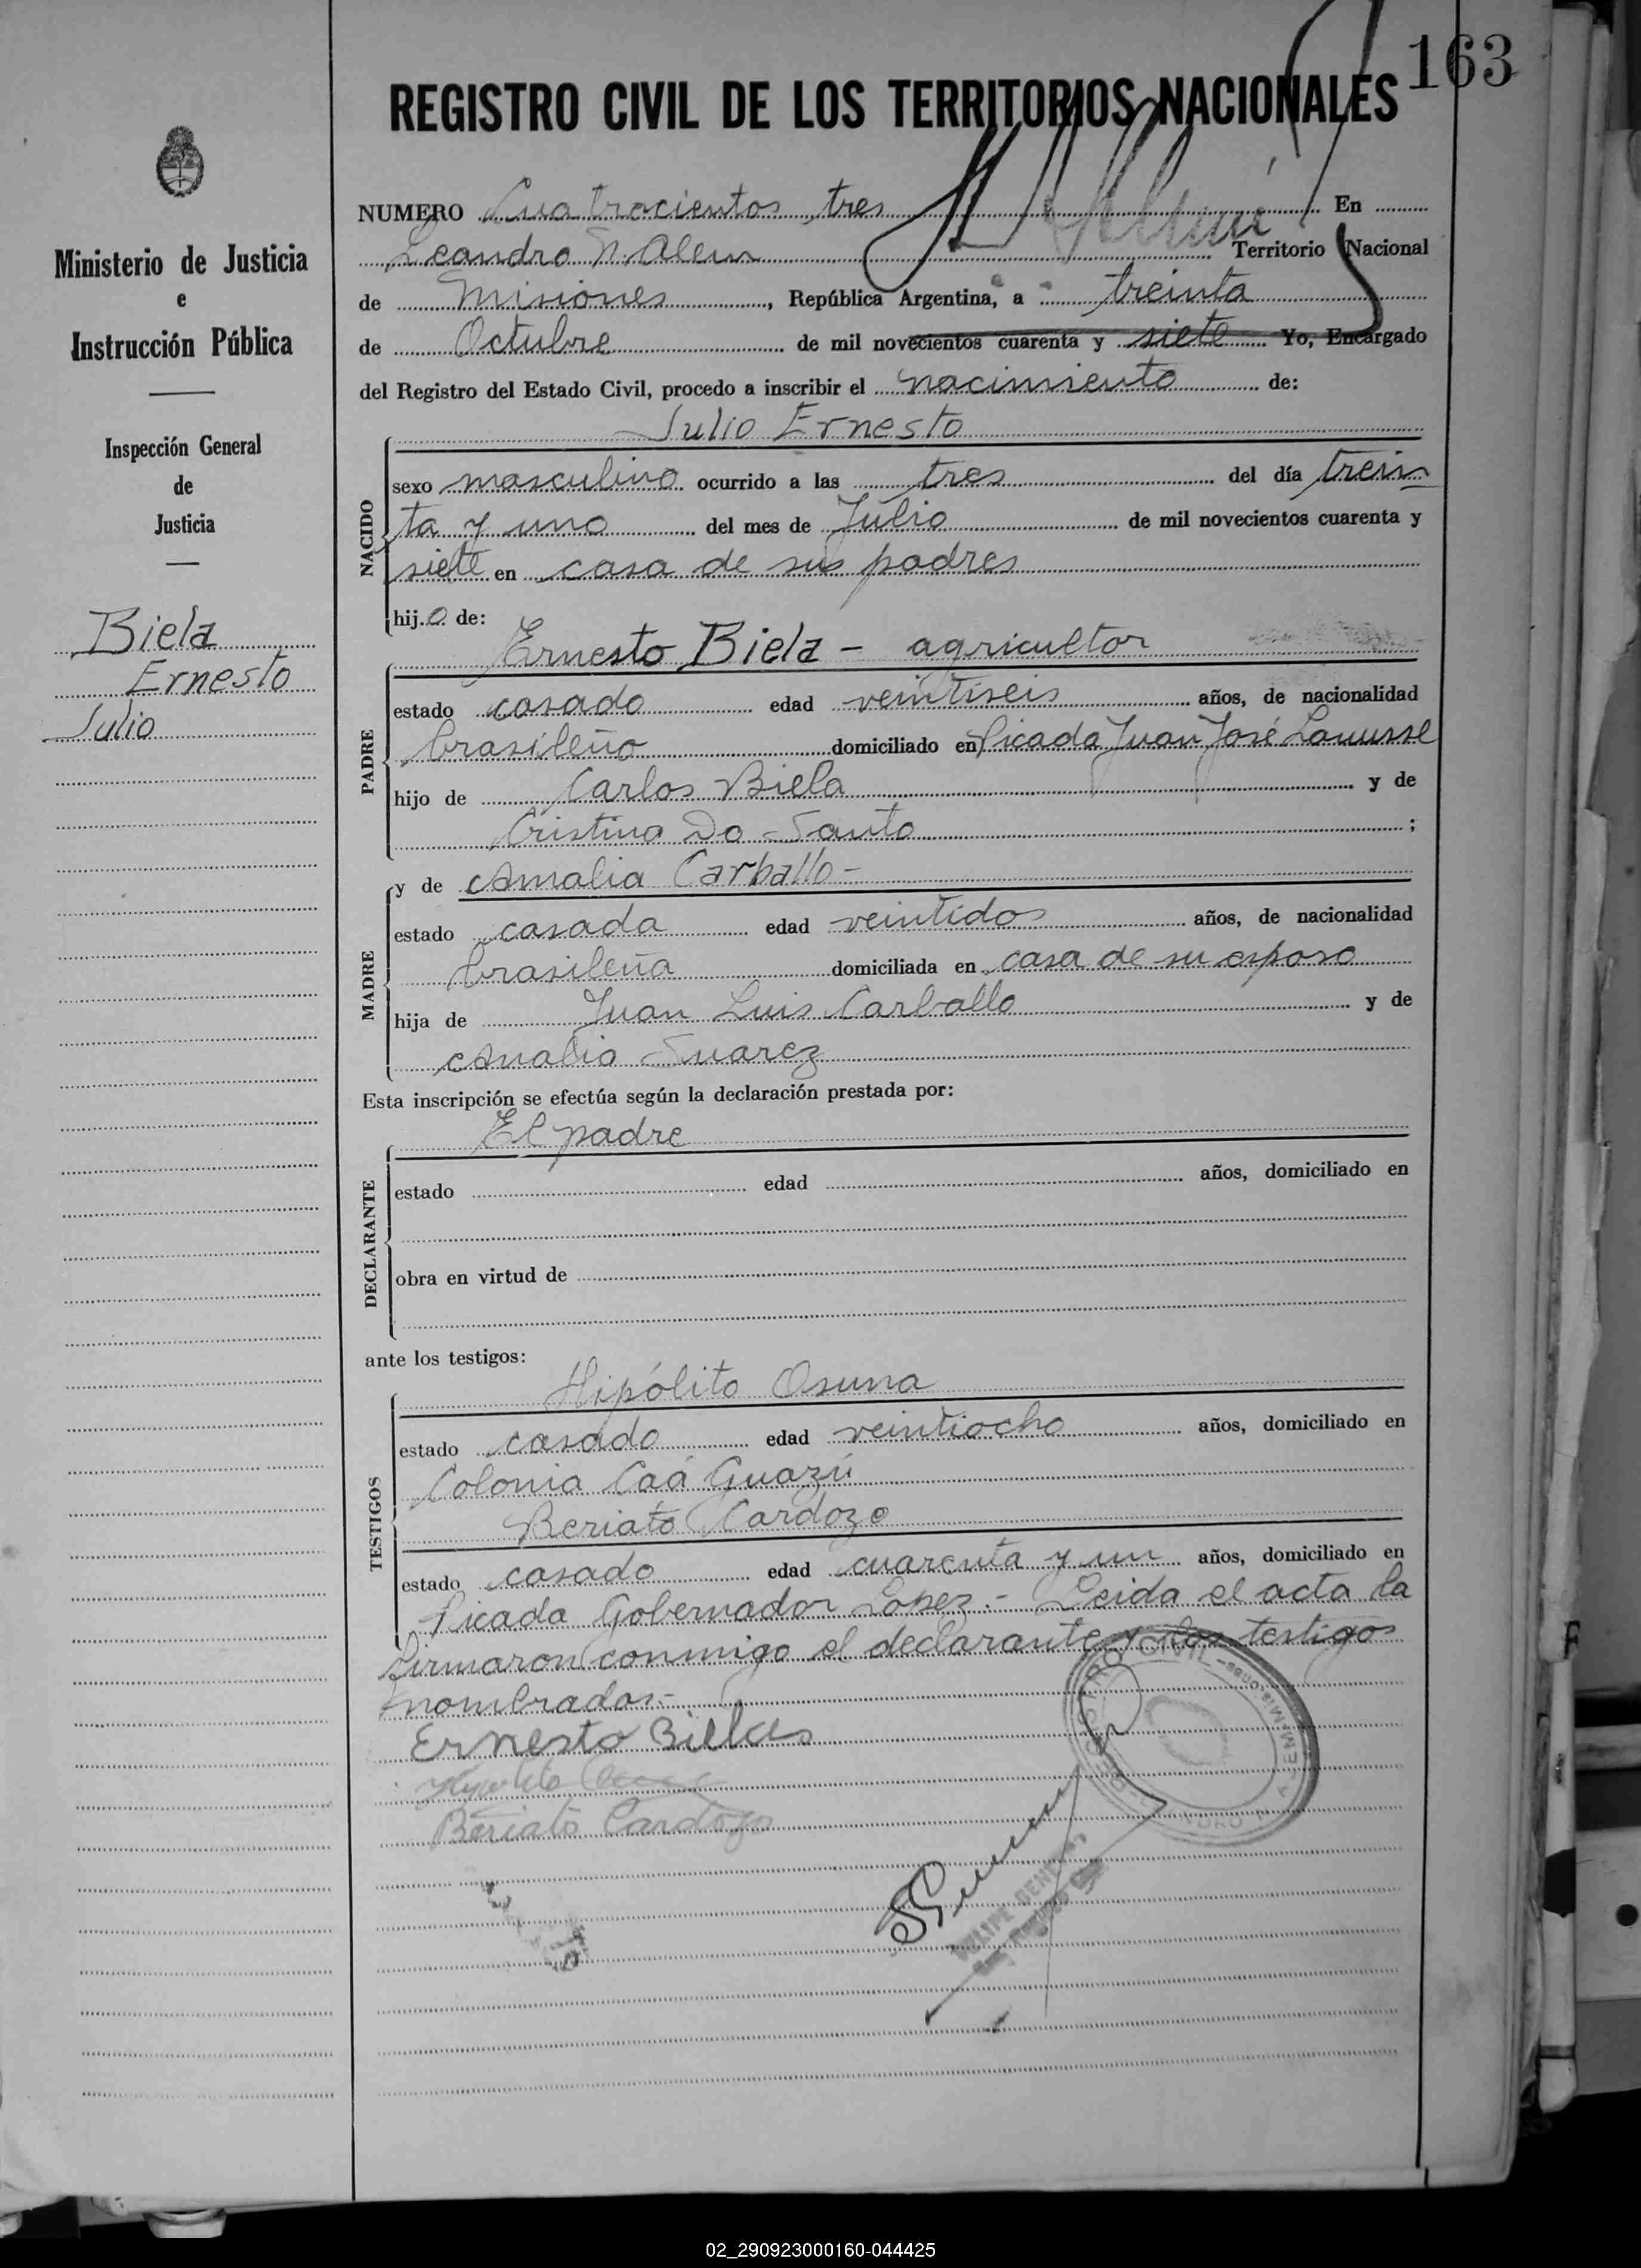 163
REGISTRO CIVIL DE LOS TERRITORIOS NACIONALES
Ministerio de Justicia
e
Instrucción Pública
Inspección General
de
Justicia
Biela
Ernesto
Julio
NUMERO Cuatrocientos tres En
Leandro N. Alem Territorio Nacional
de Misiones, República Argentina, a treinta
de Octubre de mil novecientos cuarenta y siete Yo, Encargado
del Registro del Estado Civil, procedo a inscribir el nacimiento de:
Julio Ernesto
NACIDO
sexo masculino ocurrido a las tres del día trein
ta y uno del mes de Julio de mil novecientos cuarenta y
siete en casa de sus padres
hijo de:
Ernesto Biela - agricultor
PADRE
estado casado edad veintiseis años, de nacionalidad
brasileño domiciliado en Picada Juan José Lanusse
hijo de Carlos Biela y de
Cristina Do Santo ;
MADRE
y de Amalia Carballo -
estado casada edad veintidos años, de nacionalidad
brasileña domiciliada en casa de su esposo
hija de Juan Luis Carballo y de
Analia Suarez
Esta inscripción se efectúa según la declaración prestada por:
El padre
DECLARANTE
estado edad años, domiciliado en
obra en virtud de
ante los testigos:
Hipólito Osuna
TESTIGOS
estado casado edad veintiocho años, domiciliado en
Colonia Caá Guazú
Beriato Cardozo
estado casado edad cuarenta y un años, domiciliado en
Picada Gobernador Lopez.- Leida el acta la
firmaron conmigo el declarante y los testigos
nombrados.-
Ernesto Billas
Beriato Cardozo
REGISTRO CIVIL
02_290923000160-044425